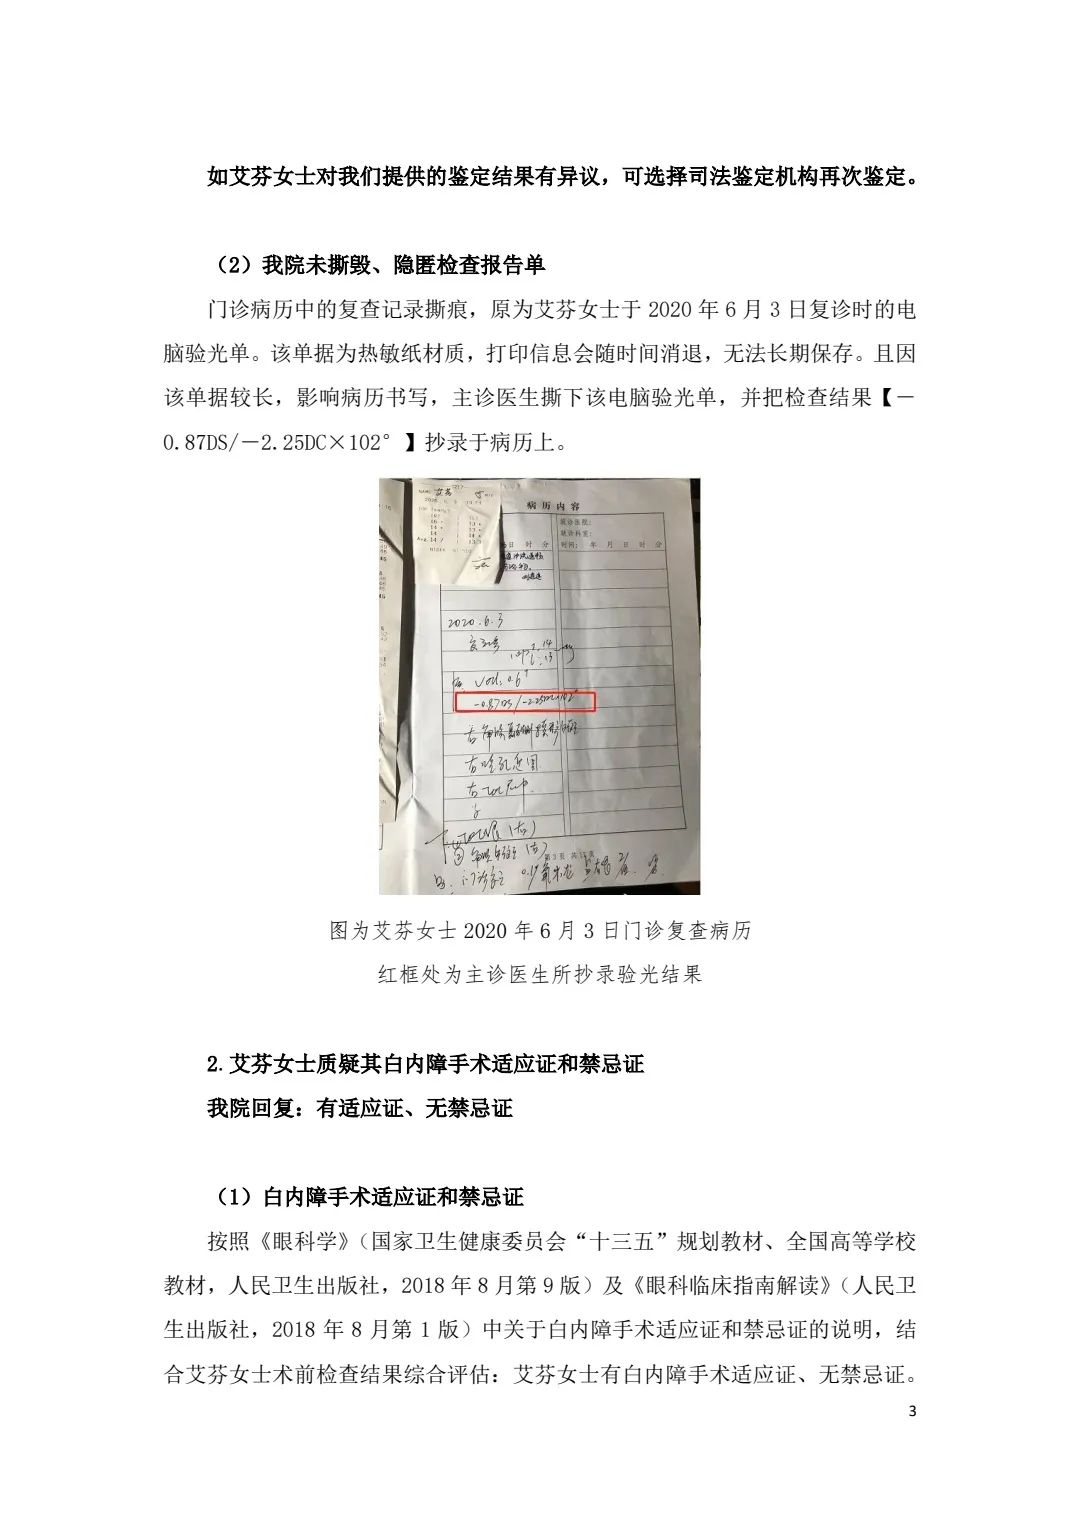 如艾芬女士对我们提供的鉴定结果有异议，可选择司法鉴定机构再次鉴定。
（2）我院未撕毁、隐匿检查报告单
门诊病历中的复查记录撕痕，原为艾芬女士于 2020 年 6 月 3 日复诊时的电
脑验光单。该单据为热敏纸材质，打印信息会随时间消退，无法长期保存。且因
该单据较长，影响病历书写，主诊医生撕下该电脑验光单，并把检查结果【－
0.87DS/－2.25DC×102°】抄录于病历上。
病 历 内 容
就诊医院：
就诊科室：
日 时 分
时间： 年 月 日 时 分
2020.6.3
-0.87DS/-2.25DC×102°
第 3 页
图为艾芬女士 2020 年 6 月 3 日门诊复查病历
红框处为主诊医生所抄录验光结果
2.艾芬女士质疑其白内障手术适应证和禁忌证
我院回复：有适应证、无禁忌证
（1）白内障手术适应证和禁忌证
按照《眼科学》（国家卫生健康委员会“十三五”规划教材、全国高等学校
教材，人民卫生出版社，2018 年 8 月第 9 版）及《眼科临床指南解读》（人民卫
生出版社，2018 年 8 月第 1 版）中关于白内障手术适应证和禁忌证的说明，结
合艾芬女士术前检查结果综合评估：艾芬女士有白内障手术适应证、无禁忌证。
3